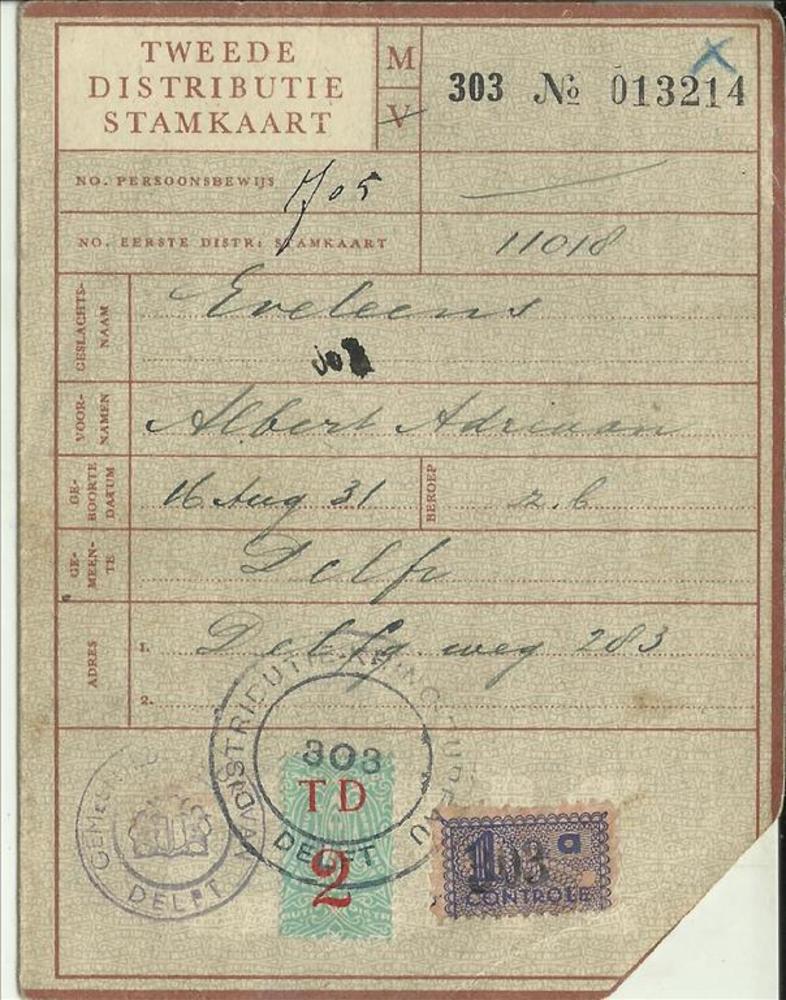 TWEEDE
DISTRIBUTIE
STAMKAART
M
V
303 № 013214
NO. PERSOONSBEWIJS
NO. EERSTE DISTR: STAMKAART 11018
GESLACHTS-
NAAM
Eveleens
VOOR-
NAMEN
Albert Adriaan
GE-
BOORTE
DATUM
16 Aug 31
BEROEP
z.b
GE-
MEEN-
TE
Delft
ADRES
1. Delfg. weg 283
2.
303
DELFT
TD
2
DELFT
1 a
CONTROLE